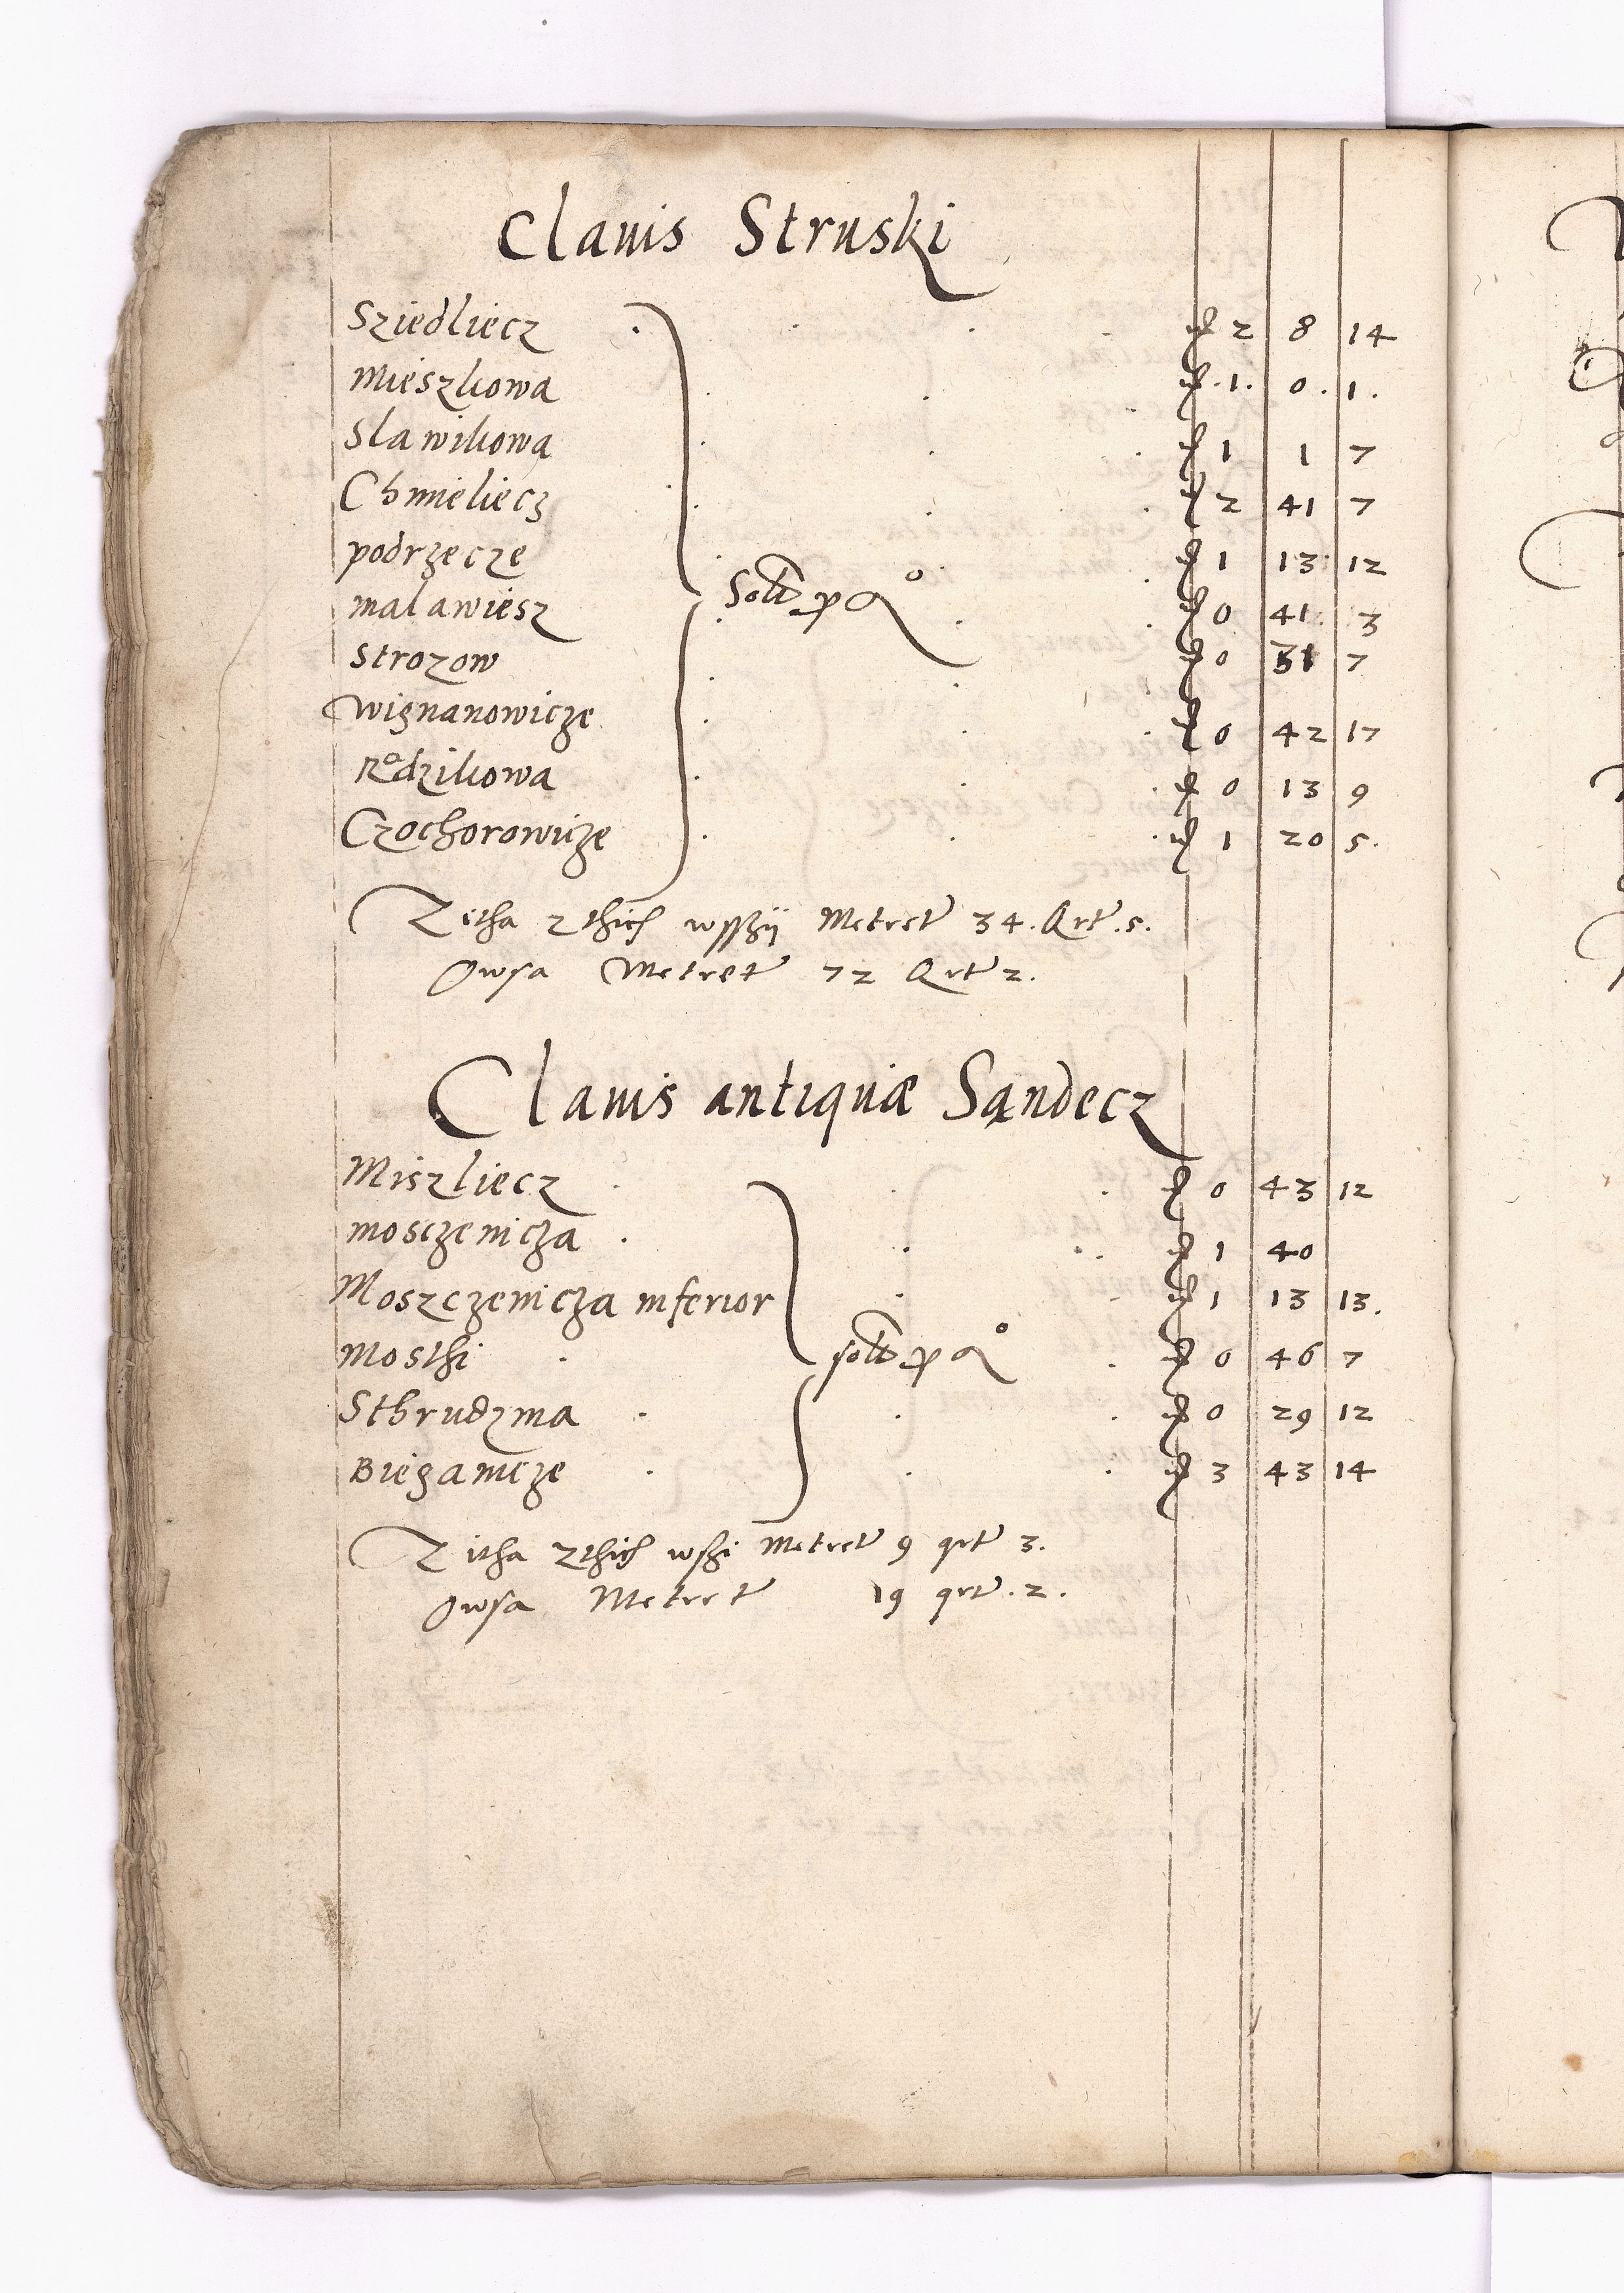 Clauis Struski
Sziedliecz . . . . 2 8 14
Mieszkowa . . . .1. 0. 1.
Slawikowa . . . 1 1 7
Chmieliecz . . . 2 41 7
podrzecze . . 1 13 12
malawiesz . . 0 41 3
Solt p ao
Strozow . . 0 31 7
Wignanowicze . . 0 42 17
Rodzikowa . . . 0 13 9
Czochorowicze . . . 1 20 5.
Zitha z thich wsszÿ Metret 34. Qrt .5.
Owsa Metret 72 Qrt 2.
Clauis antiquæ Sandecz
Miszliecz . . . 0 43 12
mosczenicza . . . 1 40
Moszczenicza inferior . . 1 13 13.
Mosthi . . 0 46 7
solt p ao
Sthrudzina . . . 0 29 12
Bieganicze . . . 3 43 14
Zitha z thich wszi Metret 9 qrt 3.
Owsa Metret 19 qrt .2.